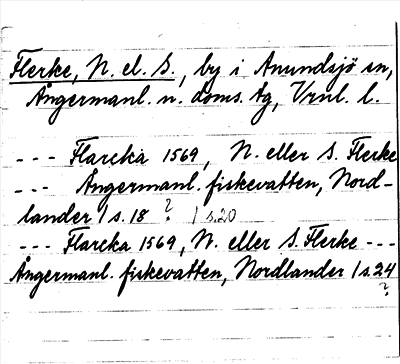 Flerke, N. el. S., by i Anundsjö sn,
Ångermanl. n. doms. tg, Vrnl. l.
--- Flarcka 1569, N. eller S. Flerke
--- Ångermanl. fiskevatten, Nord-
lander / s. 18 ? / s. 20
--- Flarcka 1569, N. eller S. Flerke ---
Ångermanl. fiskevatten, Nordlander / s. 24
?